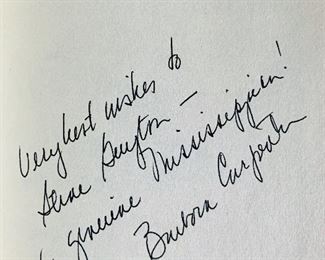 Very best wishes to
Steve Guyton —
genuine Mississippian!
Barbara Carpenter